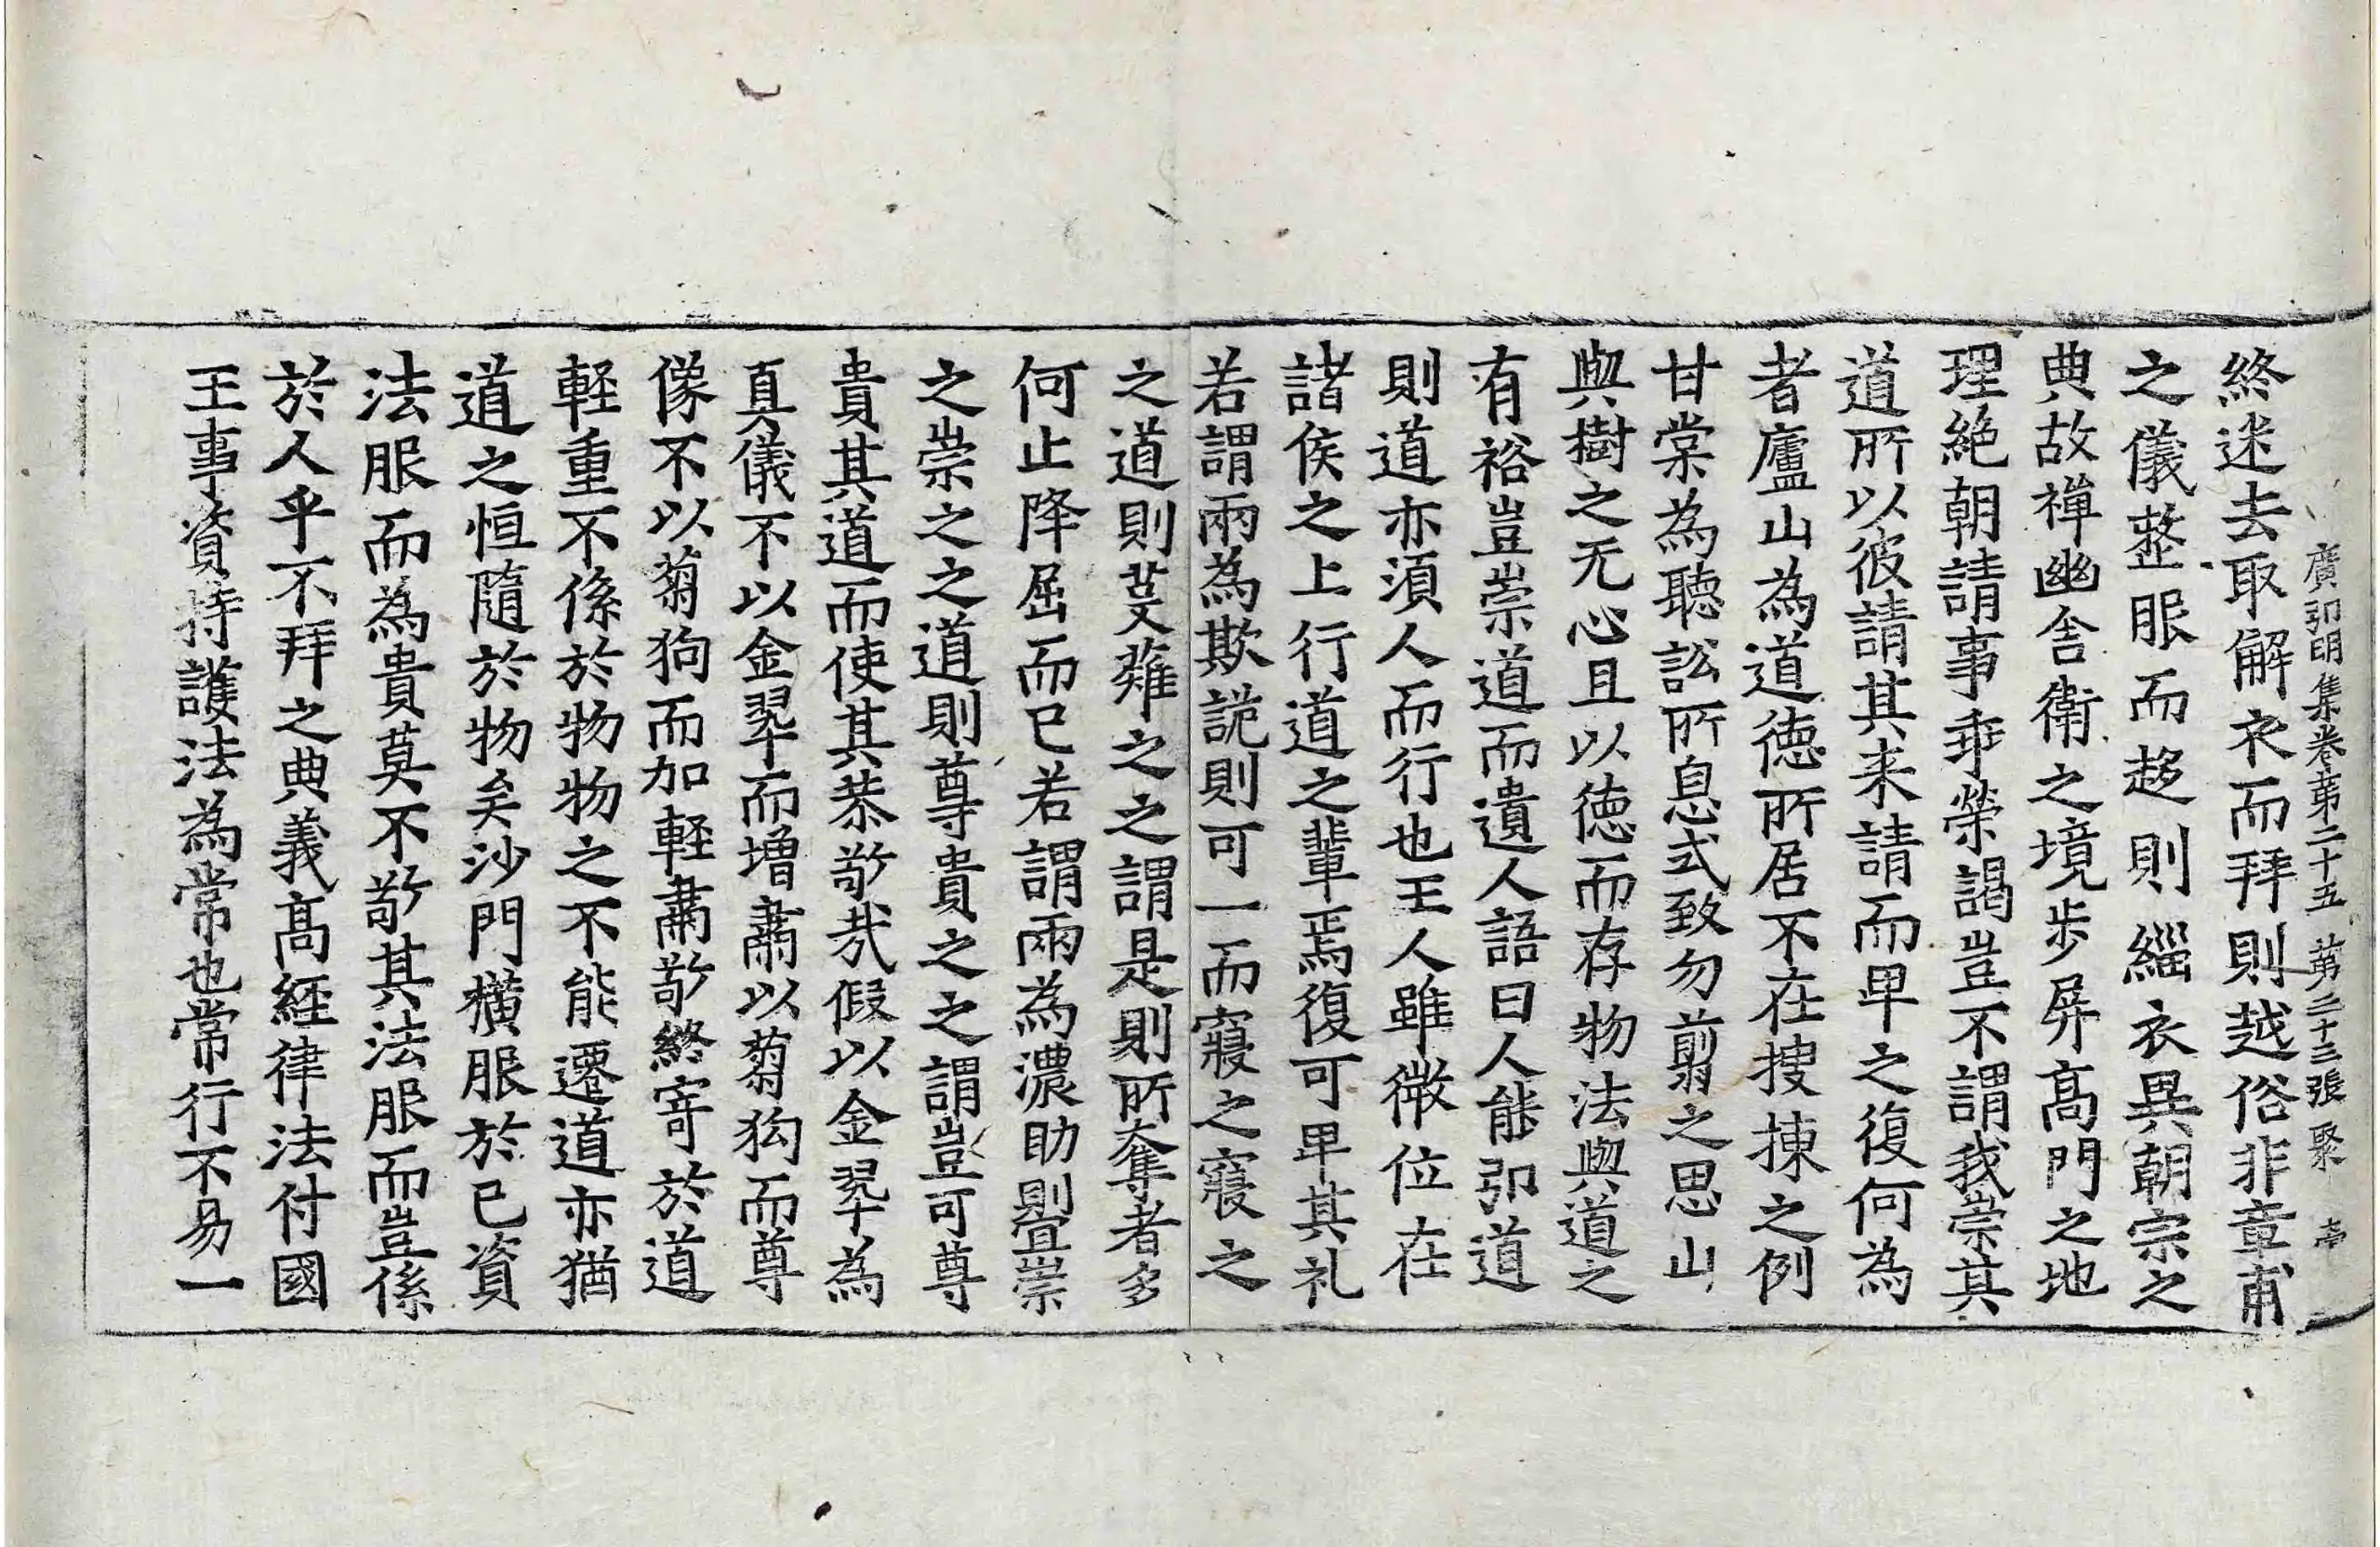 廣弘明集卷第二十五 第二十三張 聚
終迷去取解衣而拜則越俗非章甫
之儀整服而趍則緇衣異朝宗之
典故禪幽舍衛之境步屏高門之地
理絶朝請事乖榮謁豈不謂我崇其
道所以彼請其来請而卑之復何為
者廬山為道德所居不在搜揀之例
甘棠為聽訟所息式致勿剪之思山
與樹之无心且以德而存物法與道之
有裕豈崇道而遺人語曰人能弘道
則道亦須人而行也王人雖微位在
諸侯之上行道之輩焉復可卑其礼
若謂兩為欺詭則可一而寢之寢之
之道則芟薙之之謂是則所奪者多
何止降屈而已若謂兩為濃助則疊崇
之崇之之道則尊貴之之謂豈可尊
貴其道而使其恭敬哉假以金翠為
真儀不以金翠而增肅以蒭狗而尊
像不以蒭狗而加輕肅敬終寄於道
軽重不係於物物之不能遷道亦猶
道之恒隨於物矣沙門横服於已資
法服而為貴莫不敬其法服而豈係
於人乎不拜之典義高経律法付國
王事資持護法為常也常行不易一